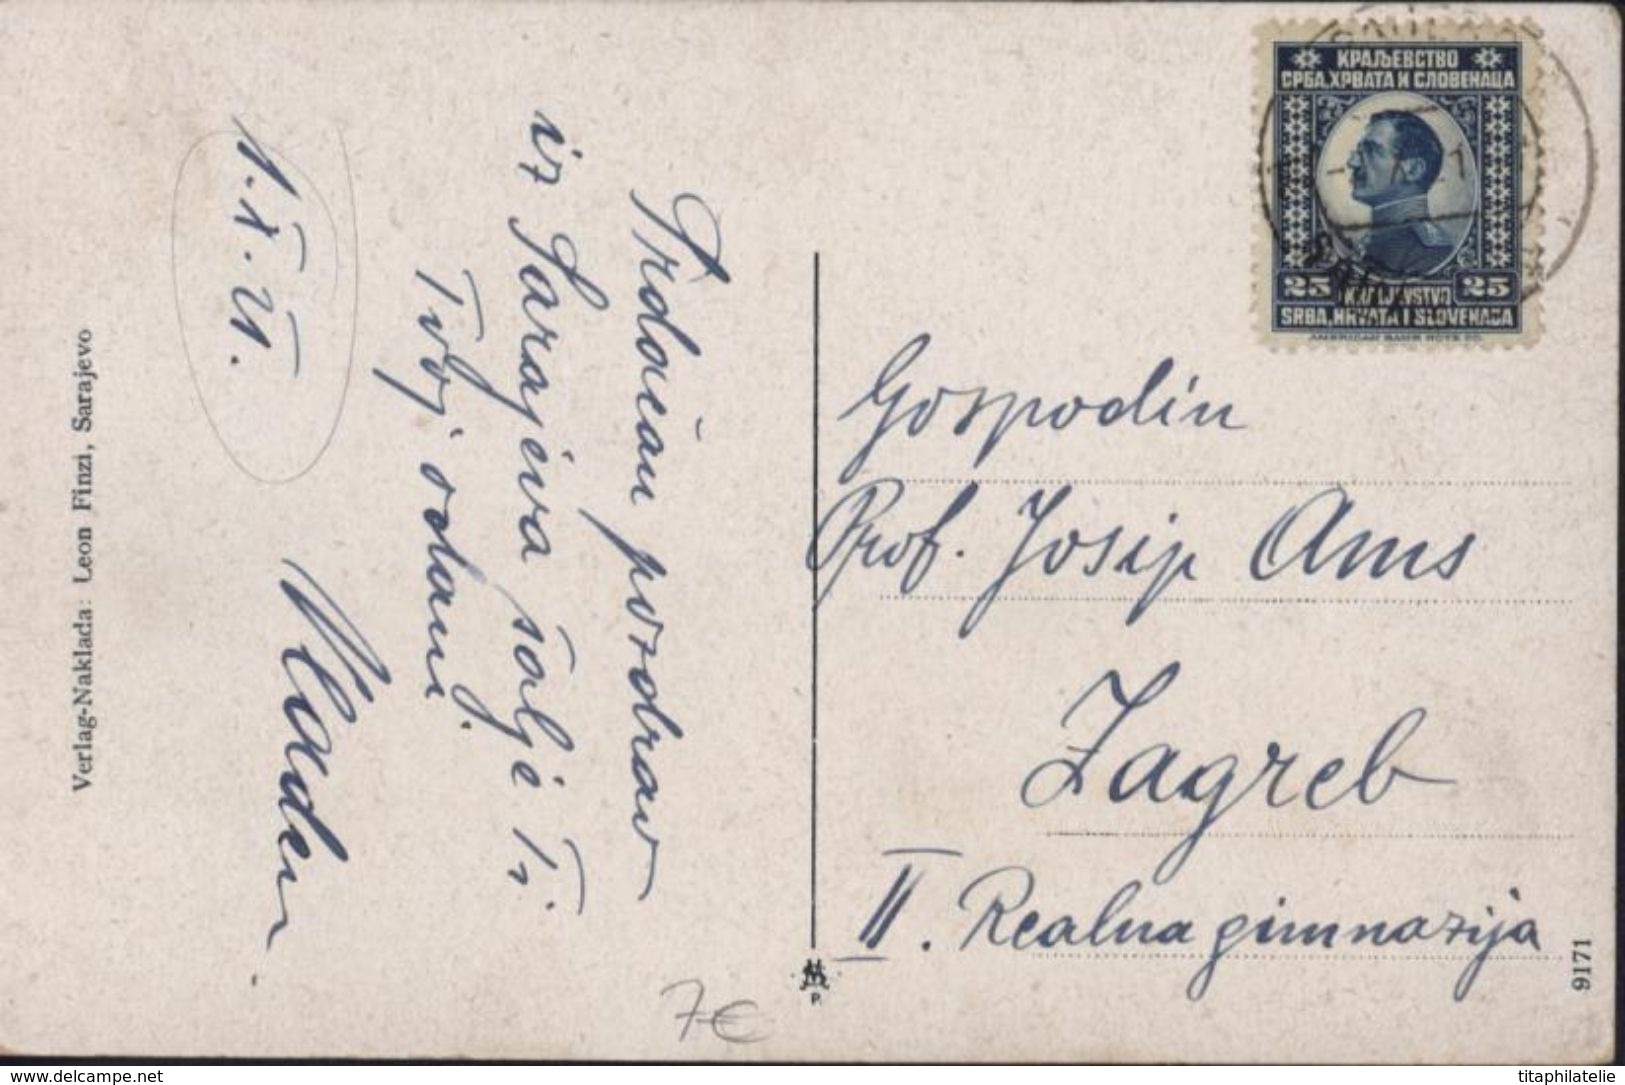 Srdačan pozdrav
iz Sarajeva šalje Ti
Tvoj odani
Mladen
1.X.21.
Verlag-Naklada: Leon Finzi, Sarajevo
КРАЉЕВСТВО
СРБА, ХРВАТА И СЛОВЕНАЦА
25 KRALJEVSTVO 25
SRBA, HRVATA I SLOVENACA
AMERICAN BANK NOTE CO.
Gospodin
Prof. Josip Ams
Zagreb
II. Realna gimnazija
9171
P.
7€
www.delcampe.net
titaphilatelie